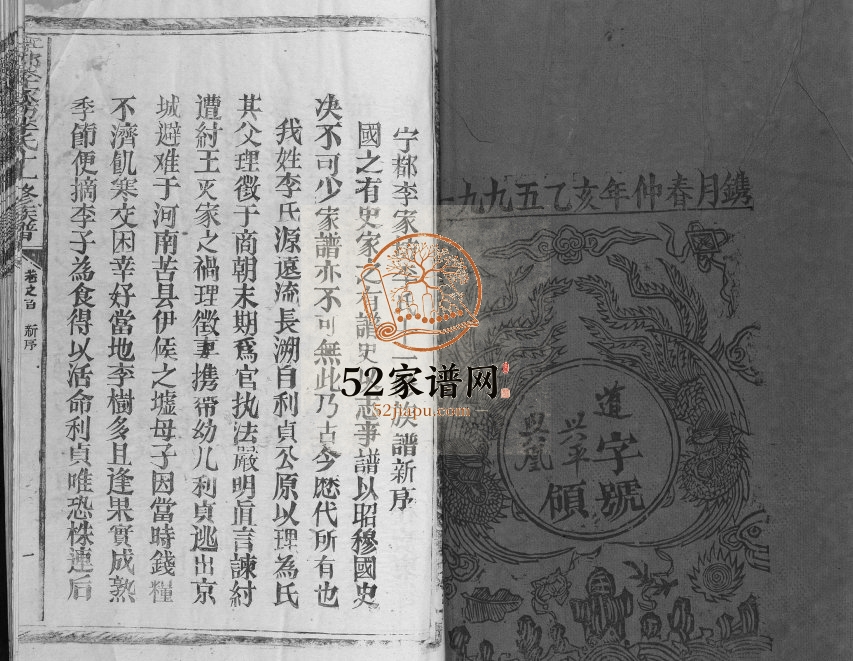 一九九五乙亥年仲春月鐫
道字號
兴平領
興凰
宁都李家 李氏十二 族譜新序
國之有史家之有譜史 志事譜以昭穆國史
决不可少家譜亦不可無此乃古今歷代所有也
我姓李氏源遠流長溯自利貞公原以理為氏
其父理徵于商朝末期為官执法嚴明直言諫紂
遭紂王灭家之禍理徵妻携帶幼儿利貞逃出京
城避难于河南苦县伊候之墟母子因當時錢糧
不濟飢寒交困幸好當地李樹多且逢果實成熟
季節便摘李子為食得以活命利貞唯恐株連后
李氏十 修族譜
卷之首 新序
一
52家谱网
52jiapu.com